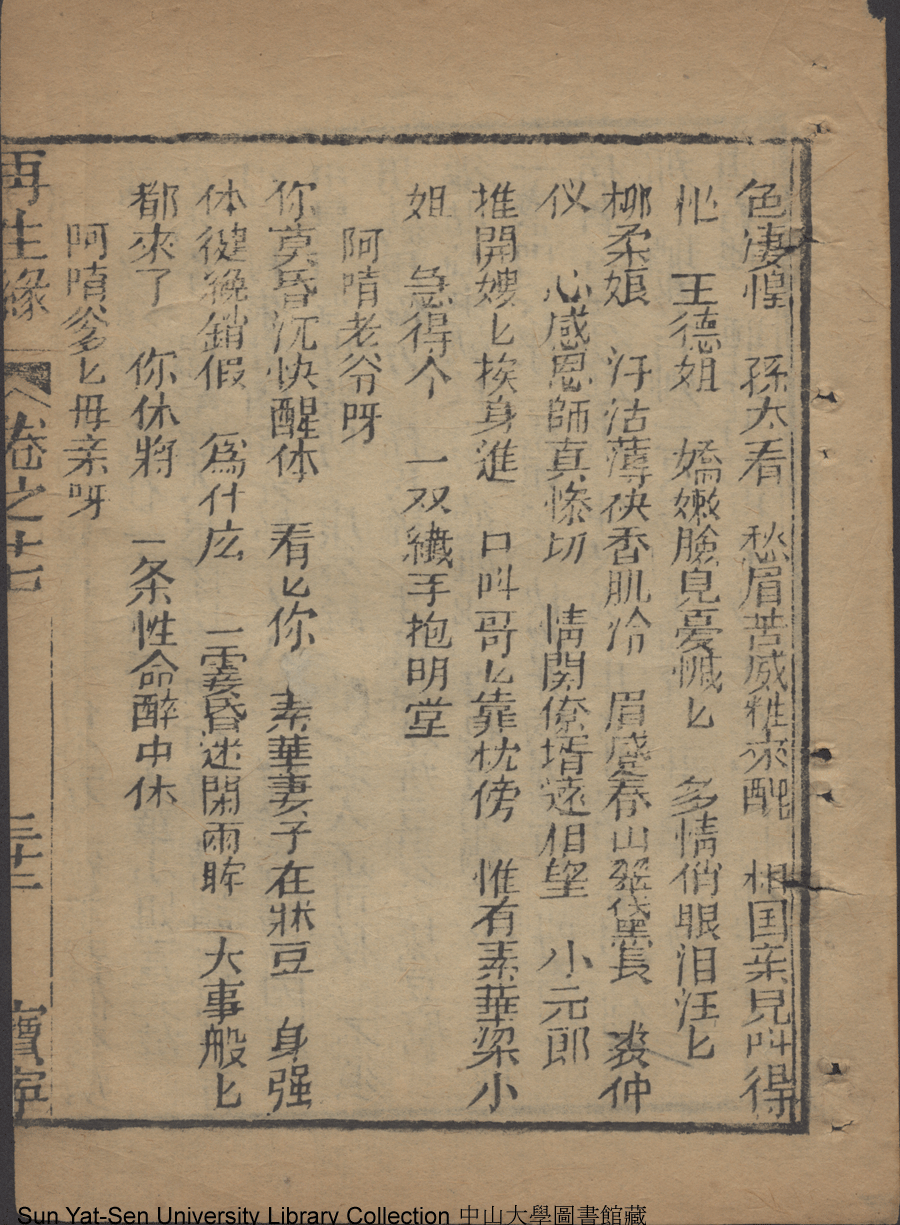 色凄惶　孫太看　愁眉苦感粧來醜　相国亲見叫得
忙　王德姐　嬌嫩臉皃憂慽匕　多情俏眼泪汪匕
柳柔娘　汗沾薄袂香肌冷　眉蹙春山翠黛長　裘仲
仪　心感恩師真慘切　情関僚壻遠相望　小元郎
推開嫂匕挨身進　口叫哥匕靠枕傍　惟有素華梁小
姐　急得个　一双纖手抱明堂
阿唷老爷呀
你莫昏沉快醒体　看匕你　素華妻子在牀豆　身强
体徤繞銷假　爲什庅　一霎昏迷閑雨眸　大事般匕
都來了　你休將　一条性命醉中休
阿唷爹匕毋亲呀
再生緣　卷之十七　三十二　寶寧
Sun Yat-Sen University Library Collection 中山大學圖書館藏